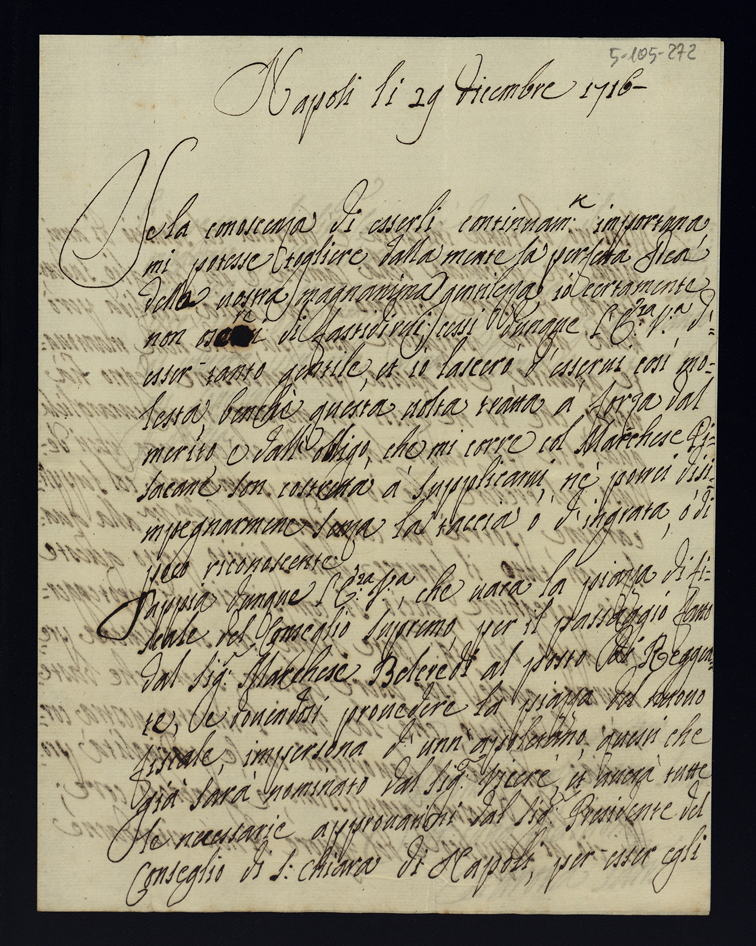 5-105-272
Napoli li 29 Dicembre 1716-
Se la conoscenza di esserli continuam.te importuna
mi potesse togliere dalla mente la perfetta Idea
della vostra magnanima gentilezza, io certamente
non di fastidirvi; cessi dunque l'E.ra V.ra d'
esser tanto gentile, et io lascerò d'esservi così mo-
lesta, benche questa volta tratta à forza dal
merito e dall'obligo, che mi corre col Marchese
son costretta à supplicarvi, nè potrei disi-
mpegnarmene senza la taccia ò d'ingrata, ò di
poco riconoscente
Sappia dunque l'E.ra V.ra che vaca la piazza di fi-
scale del Conseglio supremo, per il passaggio fatto
dal sig.r Marchese al posto di Reggen-
te, e dovendosi provedere la piazza del nuovo
fiscale, impersona d'un napoletano, questi che
già sarà nominato dal sig.r Vicerè, et haverà tutte
le necessarie approvationi dal sig.r Presidente del
Conseglio di S: Chiara di Napoli, per esser egli